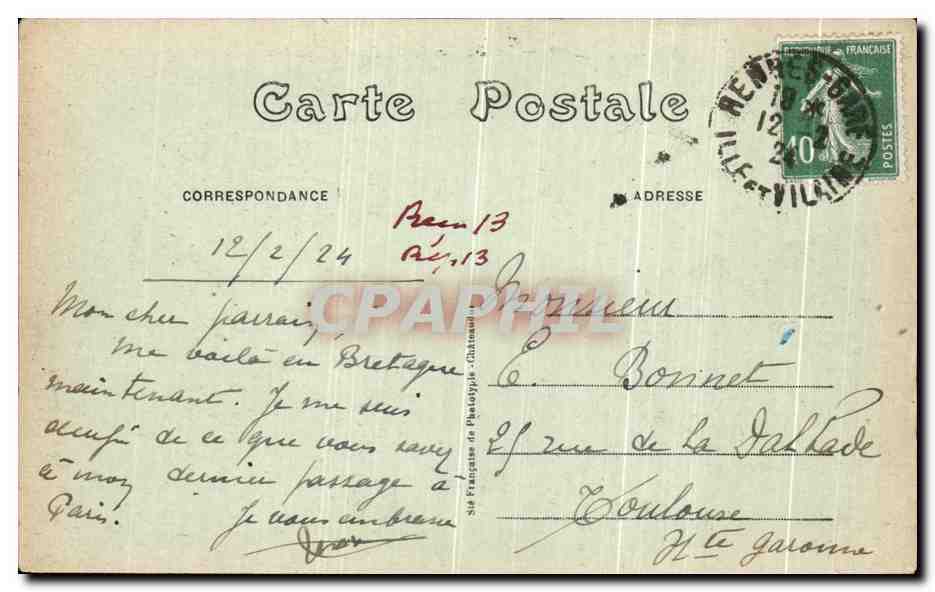 Carte Postale
CORRESPONDANCE
ADRESSE
RENNES-GARE
ILLE ET VILAINE
18
12 2
24
REPUBLIQUE FRANÇAISE
10
POSTES
12/2/24
13
Rép. 13
Mon cher parrain,
me voilà en Bretagne
maintenant. Je me suis
de ce que vous savez
à mon dernier passage à
Paris. Je vous embrasse
Jean
Sté Française de Phototypie - Châteaudun
CPAPHIL
Monsieur
E. Bonnet
25 rue de La Dalbade
Toulouse
Hte Garonne